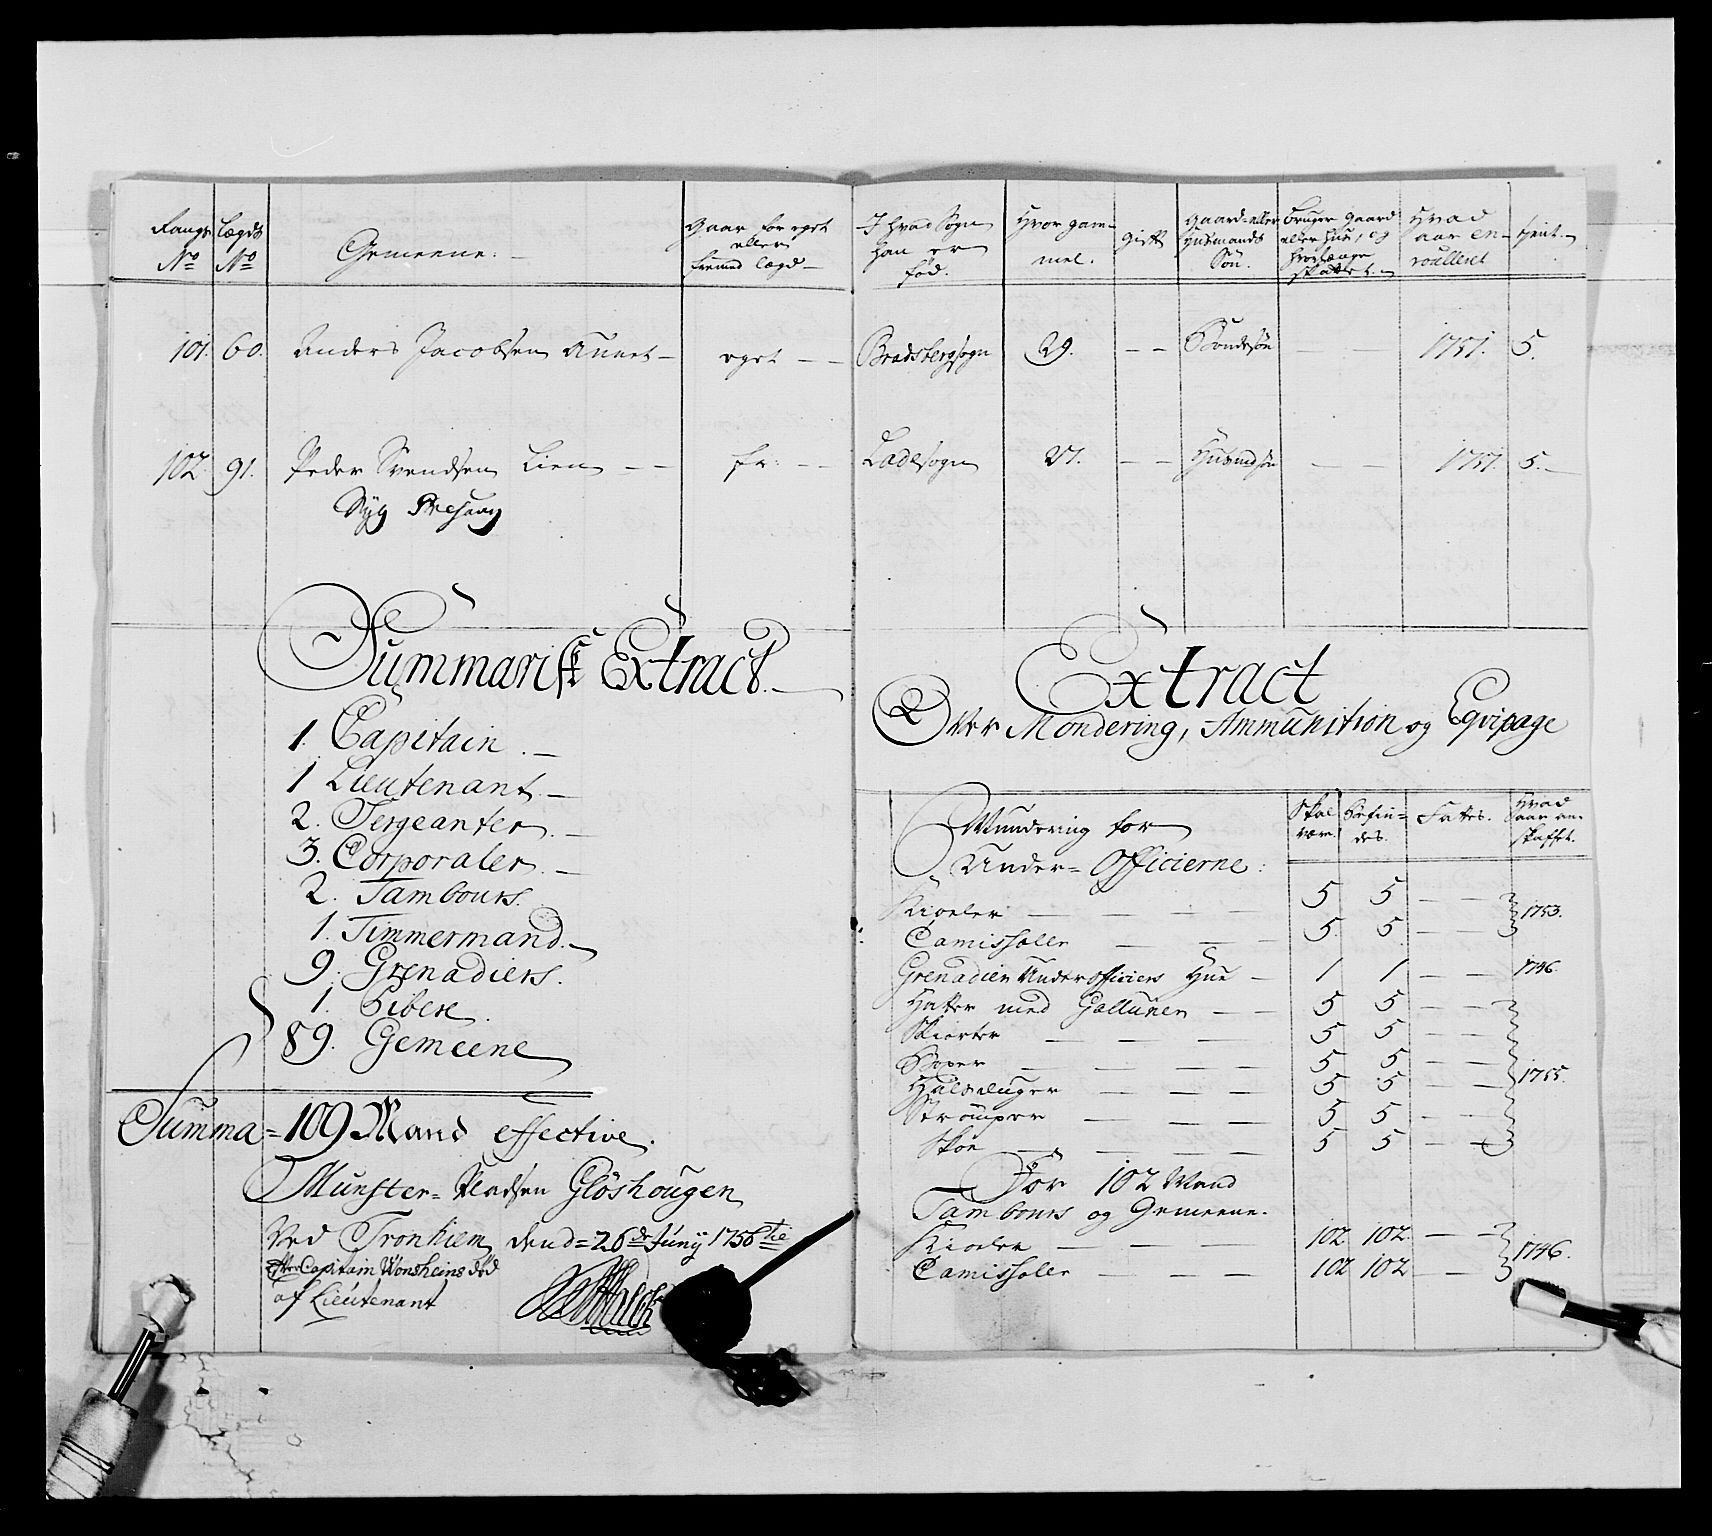 Rangs No
Lægds No
Gemeene.
Gaar for eget eller fremed lægd
I hvad Sogn han er fød.
Hvor gammel.
Gift
Gaard- eller Husmands Søn.
Bruger Gaard eller Huus, og hvorlænge skattet.
Hvad aar enroulleret
tient.
101. 60. Anders Jacobsen eget Bradsbergsogn 29. Bondesøn 1751. 5.
102. 91. Peder Svendsen Lien fr: Ladesogn 27. Husmdsøn 1751. 5.
Syg
Summarisk Extract.
1. Capitain.
1 Lieutenant.
2. Sergeanter.
3. Corporaler.
2. Tambours.
1. Timmermand.
9. Grenadiers.
1. Pibere.
89. Gemeene
Summa = 109 Mand effective.
Munster-Pladsen Glöshougen
Ved Tronhiem, dend = 26de Juny 1756tie
Efter Capitain Wonsheins død
af Lieutenant
Extract
Over Mondering, Ammunition og Eqvipage
Mundering for Under-Officierne:
Skal være.
Befindes.
Fattes.
Hvad aar anskaffet.
Kioeler 5 5
Camissoller 5. 5. 1753.
Grenadier Under officiers Hue 1 1 1746.
Hatter med Gallunen 5 5
Skiorter 5 5
Buxer 5 5
Halskluger 5 5 1755.
Strömper 5 5
Skoe 5 5
For 102 Mand
Tambours og Gemeene.
Kioeler 102. 102.
Camissoller 102 102 1746.